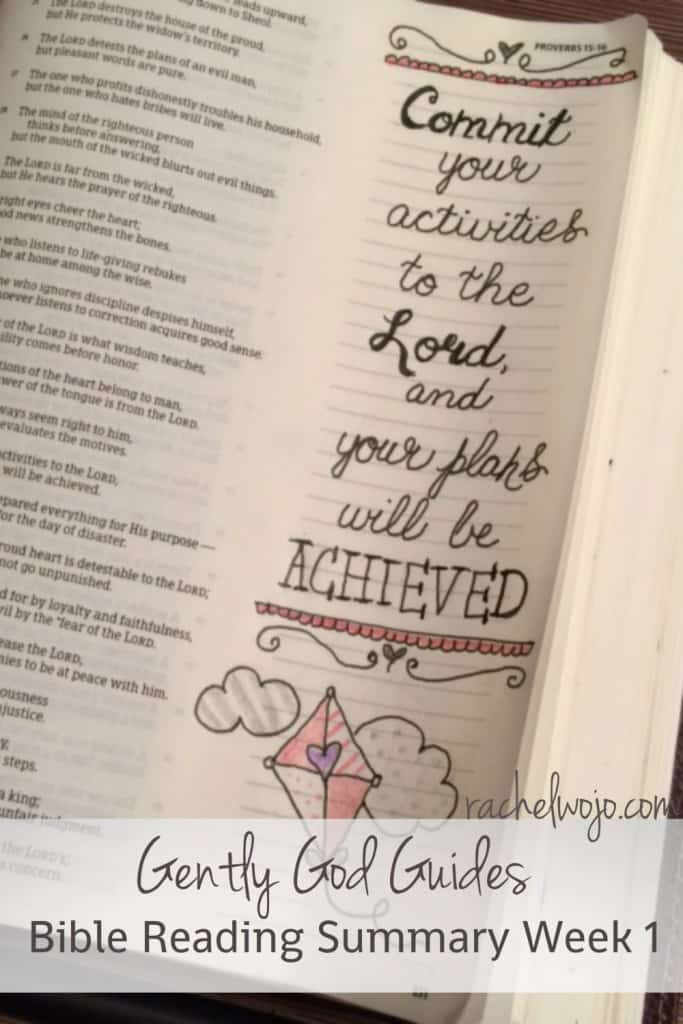 PROVERBS 15:16
The LORD destroys the house of the proud,
but He protects the widow's territory.
The LORD detests the plans of an evil man,
but pleasant words are pure.
The one who profits dishonestly troubles his household,
but the one who hates bribes will live.
The mind of the righteous person
thinks before answering,
but the mouth of the wicked blurts out evil things.
The LORD is far from the wicked,
but He hears the prayer of the righteous.
right eyes cheer the heart;
news strengthens the bones.
who listens to life-giving rebukes
be at home among the wise.
who ignores discipline despises himself,
listens to correction acquires good sense.
of the LORD is what wisdom teaches,
comes before honor.
of the heart belong to man,
of the tongue is from the LORD.
seem right to him,
evaluates the motives.
to the LORD,
will be achieved.
everything for His purpose —
for the day of disaster.
heart is detestable to the LORD;
not go unpunished.
for by loyalty and faithfulness,
by the *fear of the LORD.
the LORD,
to be at peace with him.
steps.
a king;
judgment.
the LORD's;
concern.
Commit
your
activities
to the
Lord,
and
your plans
will be
ACHIEVED
rachelwojo.com
Gently God Guides
Bible Reading Summary Week 1